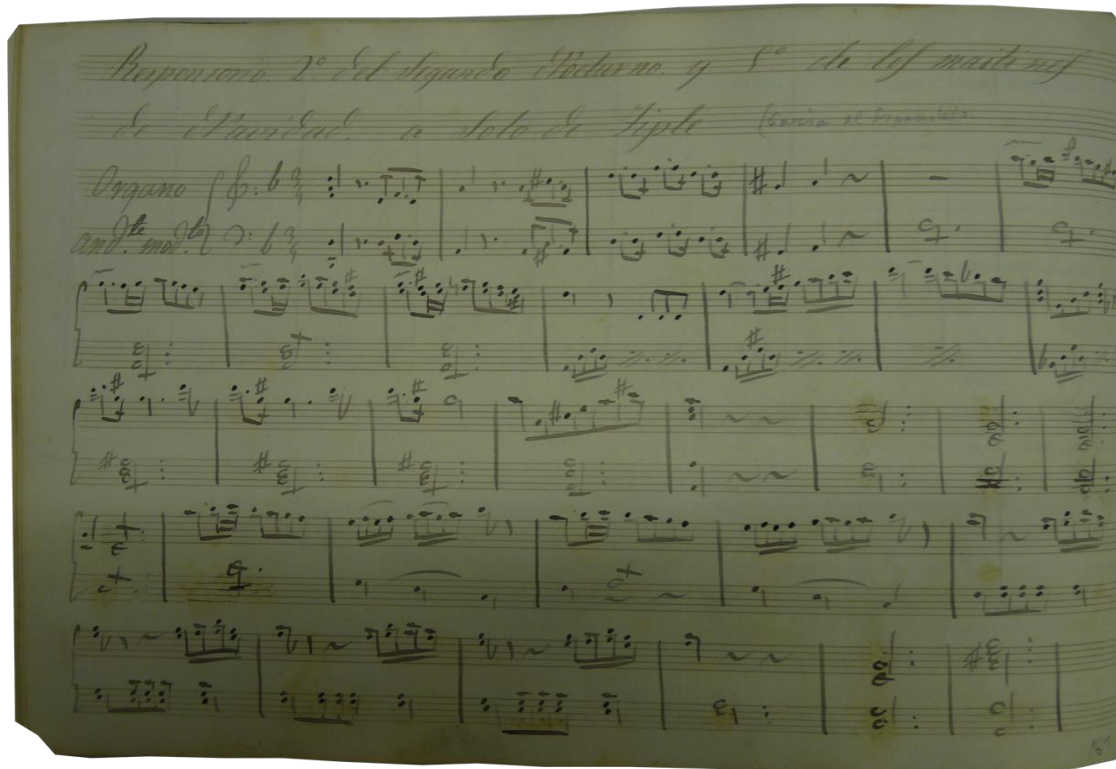 Responsorio 2º del Segundo Nocturno. y 5º de los maitines
de Navidad. a solo de Tiple
Organo
And.te mod.to